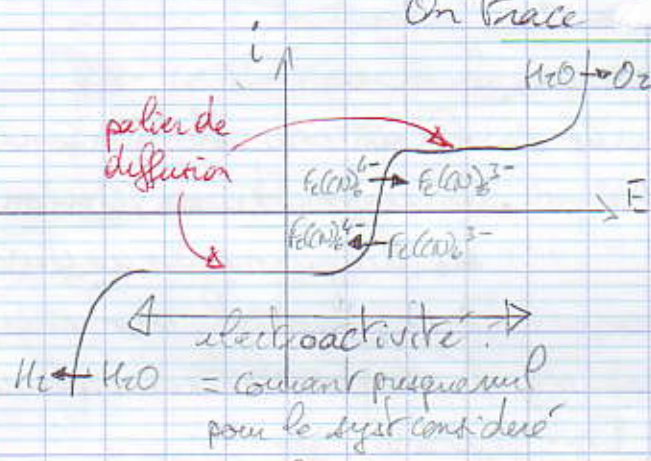 On trace
i
H2O → O2
palier de
diffusion
Fe(CN)6^4- → Fe(CN)6^3-
E
Fe(CN)6^4- ← Fe(CN)6^3-
électroactivité :
H2 ← H2O
= courant presque nul
pour le syst considéré